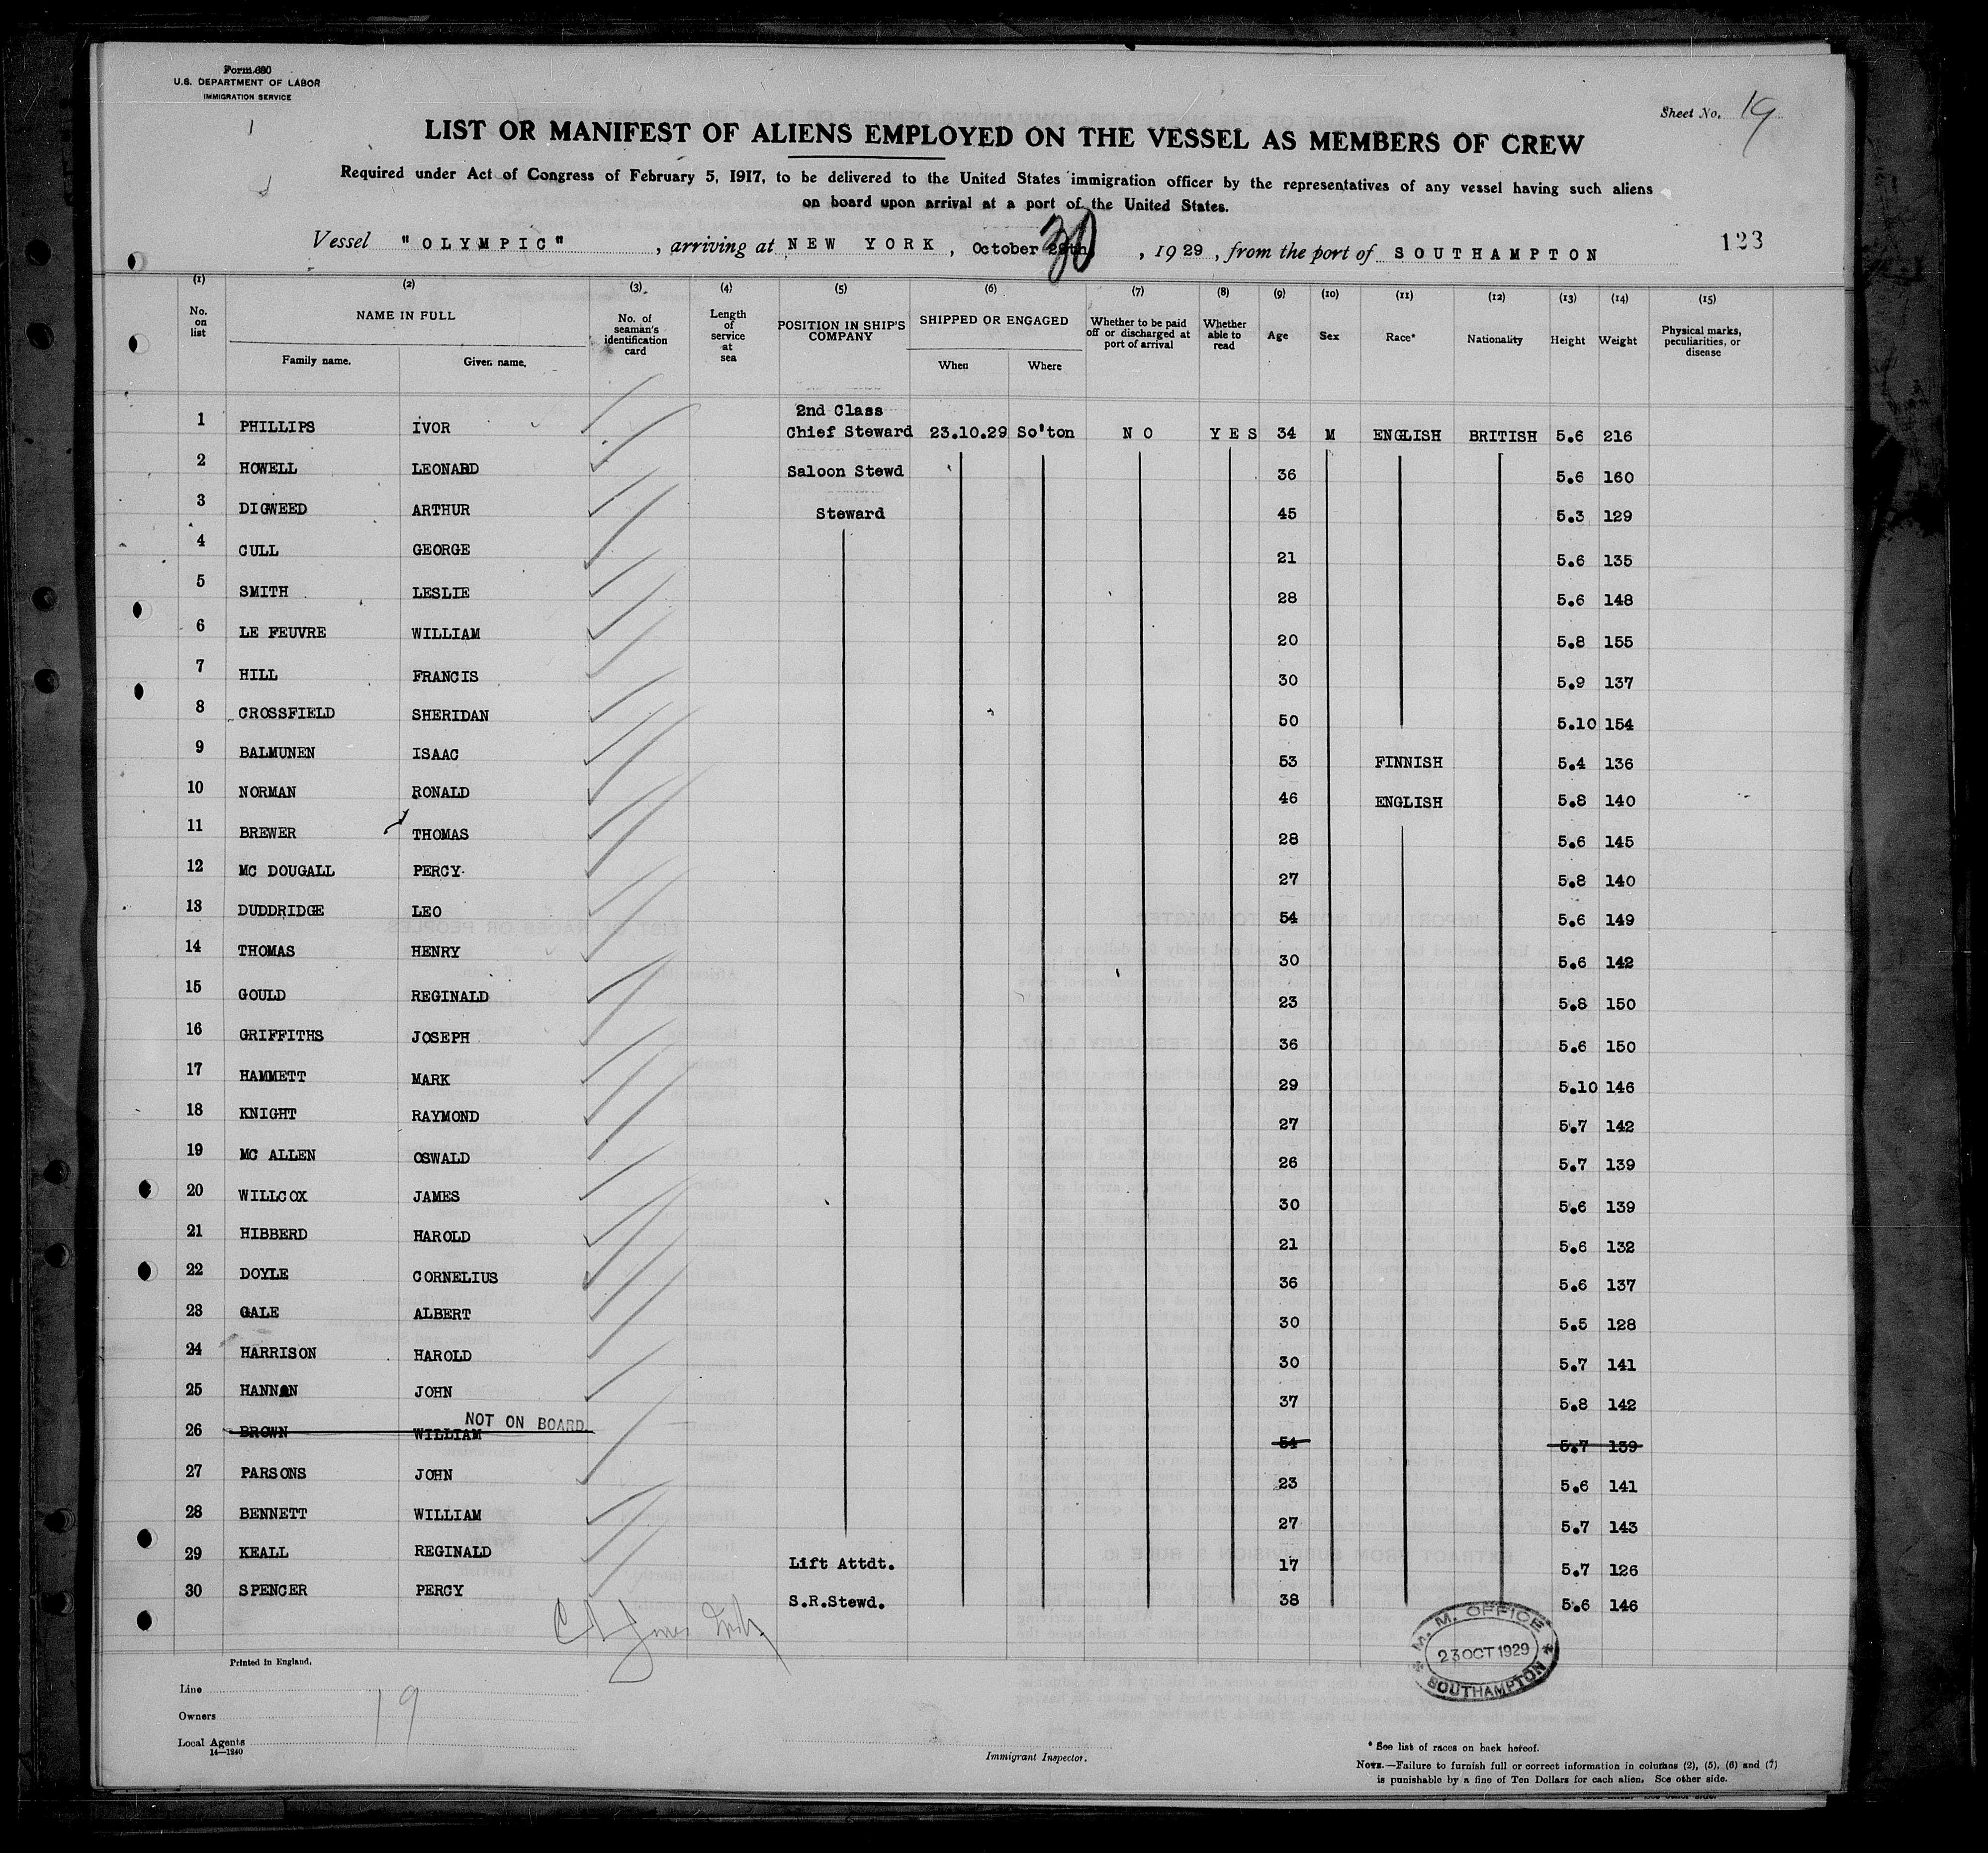 Form 680
U.S. DEPARTMENT OF LABOR
IMMIGRATION SERVICE
Sheet No. 19
LIST OR MANIFEST OF ALIENS EMPLOYED ON THE VESSEL AS MEMBERS OF CREW
Required under Act of Congress of February 5, 1917, to be delivered to the United States immigration officer by the representatives of any vessel having such aliens
on board upon arrival at a port of the United States.
Vessel "OLYMPIC", arriving at NEW YORK, October 30, 1929, from the port of SOUTHAMPTON
123
(1) (2) (3) (4) (5) (6) (7) (8) (9) (10) (11) (12) (13) (14) (15)
No. on list NAME IN FULL Family name. Given name. No. of seaman's identification card Length of service at sea POSITION IN SHIP'S COMPANY SHIPPED OR ENGAGED When Where Whether to be paid off or discharged at port of arrival Whether able to read Age Sex Race* Nationality Height Weight Physical marks, peculiarities, or disease
1 PHILLIPS IVOR 2nd Class Chief Steward 23.10.29 So'ton NO YES 34 M ENGLISH BRITISH 5.6 216
2 HOWELL LEONARD Saloon Stewd 36 5.6 160
3 DIGWEED ARTHUR Steward 45 5.3 129
4 CULL GEORGE 21 5.6 135
5 SMITH LESLIE 28 5.6 148
6 LE FEUVRE WILLIAM 20 5.8 155
7 HILL FRANCIS 30 5.9 137
8 CROSSFIELD SHERIDAN 50 5.10 154
9 BALMUNEN ISAAC 53 FINNISH 5.4 136
10 NORMAN RONALD 46 ENGLISH 5.8 140
11 BREWER THOMAS 28 5.6 145
12 MC DOUGALL PERCY 27 5.8 140
13 DUDDRIDGE LEO 54 5.6 149
14 THOMAS HENRY 30 5.6 142
15 GOULD REGINALD 23 5.8 150
16 GRIFFITHS JOSEPH 36 5.6 150
17 HAMMETT MARK 29 5.10 146
18 KNIGHT RAYMOND 27 5.7 142
19 MC ALLEN OSWALD 26 5.7 139
20 WILLCOX JAMES 30 5.6 139
21 HIBBERD HAROLD 21 5.6 132
22 DOYLE CORNELIUS 36 5.6 137
23 GALE ALBERT 30 5.5 128
24 HARRISON HAROLD 30 5.7 141
25 HANNAN JOHN 37 5.8 142
26 BROWN WILLIAM NOT ON BOARD. 54 5.7 139
27 PARSONS JOHN 23 5.6 141
28 BENNETT WILLIAM 27 5.7 143
29 KEALL REGINALD Lift Attdt. 17 5.7 126
30 SPENCER PERCY S.R.Stewd. 38 5.6 146
M. M. OFFICE
23 OCT 1929
SOUTHAMPTON
Printed in England.
Line
Owners
19
Local Agents
14—1240
Immigrant Inspector.
* See list of races on back hereof.
NOTE.—Failure to furnish full or correct information in columns (2), (5), (6) and (7)
is punishable by a fine of Ten Dollars for each alien. See other side.